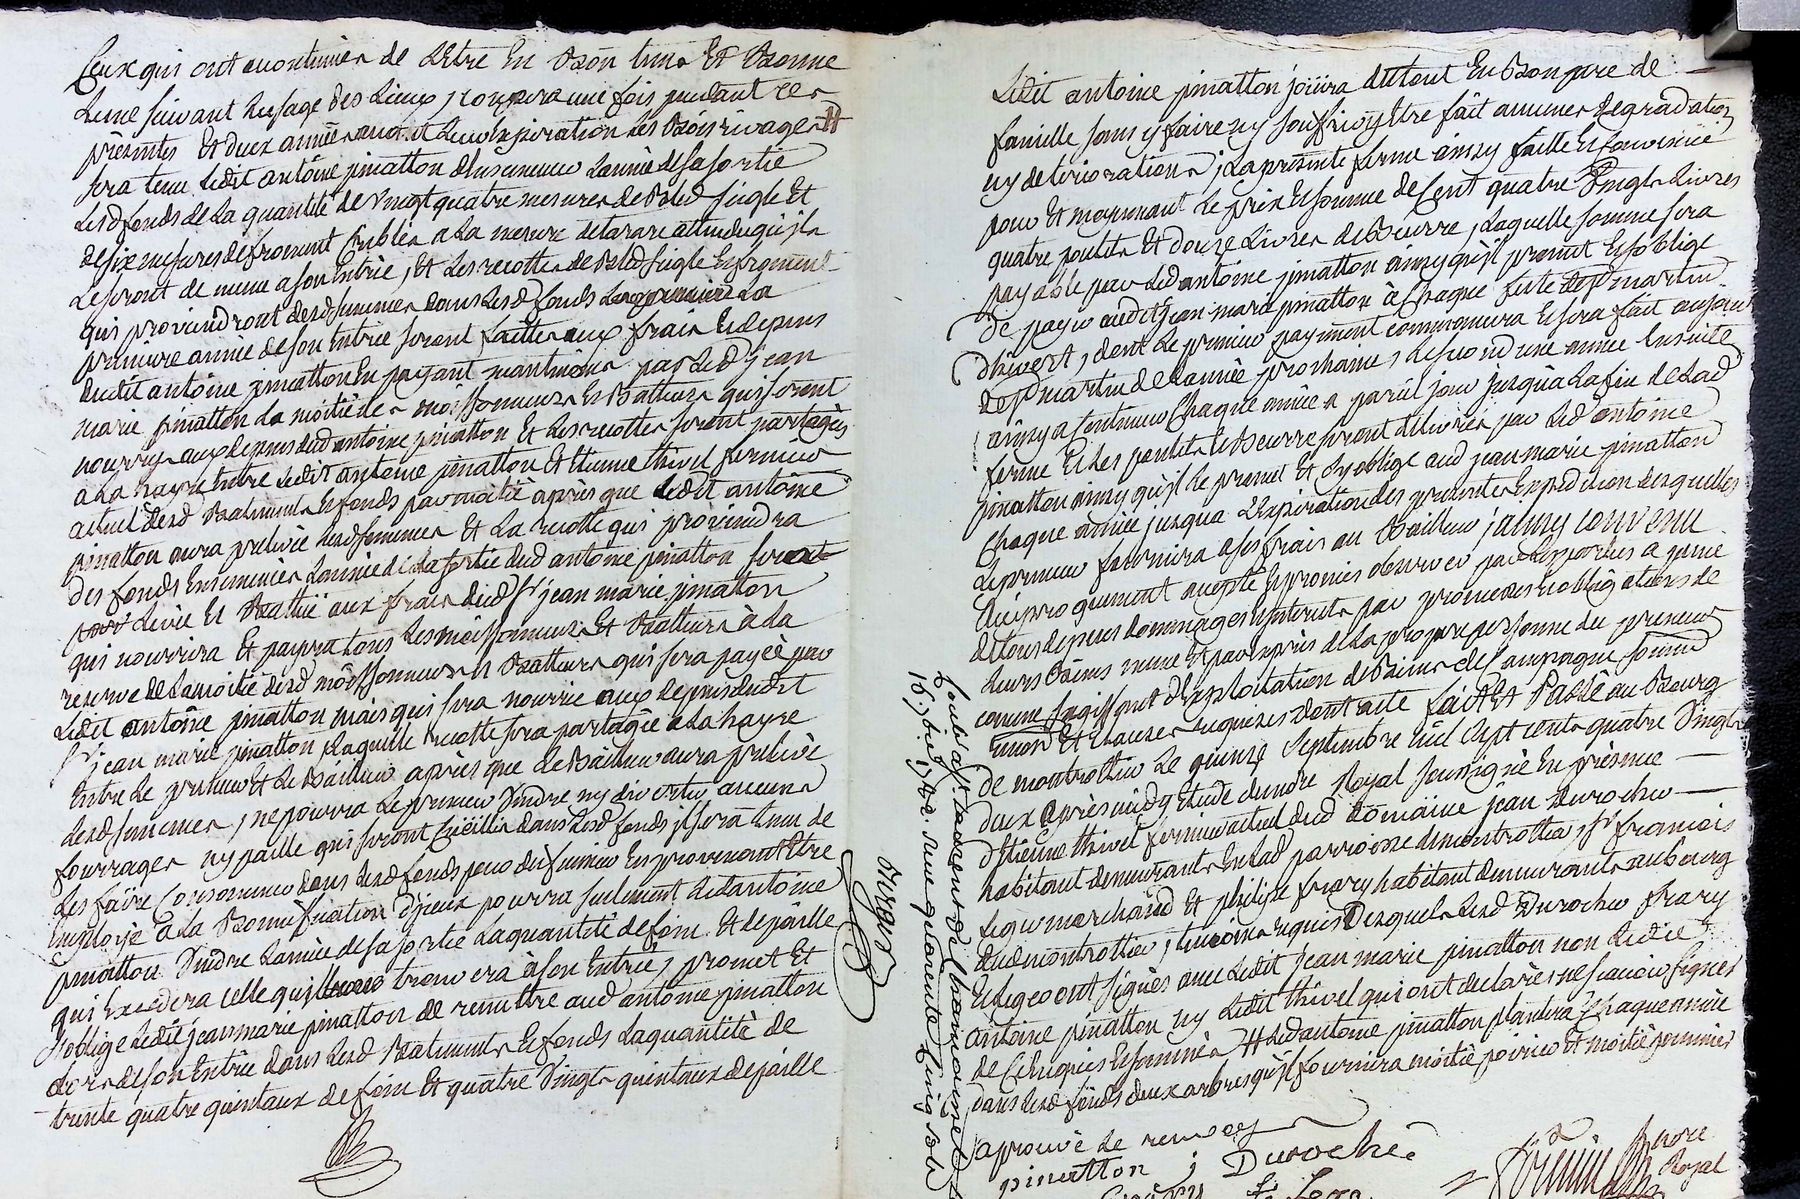 Ceux qui ont coutumier de Lêtre En Bon tems Et Bonne
Lune suivant Lusage des Lieux, coupera une fois pendant ces
présentes Et deux années avant Leur Expiration Les Bois rivages #
sera tenu Ledit antoine pinatton densemencer Lannée de sa sortie
Lesd fonds de La quantité de vingt quatre mesures de Bled seigle Et
de six mesures de froment Criblés a La mesure de tarare attendu qu'ils
Le seront de meme a son Entrée, Et Les recoltes de Bled seigle Et froment
qui proviendront desd semences dans Lesd fonds La
premiere année de son Entrée seront faittes aux frais Et depens
dudit antoine pinatton En payant neantmoins par Led jean
marie pinatton La moitié des moissonneurs Et Batteurs qui seront
nourrys aux depens dud antoine pinatton Et Les recoltes seront partagées
a La hayre Entre Ledit antoine pinatton Et Etienne thivel fermier
actuel desd Batiments Et fonds par moitié après que Ledit antoine
pinatton aura prelevé Lesd semences Et La recolte qui proviendra
des fonds Ensemencés Lannée de La sortie dud antoine pinatton sera
Levée Et Battüe aux frais dud Sr jean marie pinatton
qui nourrira Et payera tous Les moissonneurs Et Batteurs à La
reserve de La moitié desd moissonneurs Et Batteurs qui sera payée par
Ledit antoine pinatton mais qui sera nourrie aux depens dudit
Sr jean marie pinatton Laquelle recolte sera partagée a La hayre
Entre Le preneur Et Le Bailleur après que Le Bailleur aura prelevé
Lesd semences, ne pourra Le preneur vendre ny divertir aucuns
fourrages ny paille qui seront Cüeillis dans Lesd fonds il sera tenu de
Les faire Consommer dans Lesd fonds pour du fumier En provenant Être
Employé à La Bonnification d'jceux pourra seulement Led antoine
pinatton vendre Lannée de sa sortie La quantité de foin Et de paille
qui Excedera celle qu'il trouvera à son Entrée, promet Et
s'oblige Ledit jean marie pinatton de remettre aud antoine pinatton
Lors de son Entrée dans Lesd Batiments Et fonds La quantité de
trente quatre quintaux de foin Et quatre vingts quintaux de paille
Ledit antoine pinatton joüira du tout En Bon pere de
famille sans y faire ny souffrir y Etre fait aucunes degradations
ny deteriorations, La présente ferme ainsy faitte Et Convenüe
pour Et moyennant Le prix Et somme de Cent quatre vingts Livres
quatre poulets Et douze Livres de Beurre, Laquelle somme sera
payable par Led antoine pinatton ainsy qu'il promet Et s'oblige
de payer audit jean marie pinatton à Chaque feste de St martin
d'hivert, dont Le premier payement commencera Et sera fait au jour
de St martin de Lannée prochaine, Le second une année Ensuite
ainsy a Continuer Chaque année a pareil jour jusqu'a La fin de Lad
ferme Et Les poulets Et Beurre seront delivrés par Led antoine
pinatton ainsy qu'il Le promet Et s'y oblige aud jean marie pinatton
Chaque année jusqua L'Expiration des presentes Expedition desquelles
Le preneur fournira a ses frais au Bailleur, ainsy convenu
reciproquement accepté Et promis observer par Les parties a peine
de tous depens dommages Et interets par promesses Et obligations de
Leurs Biens meme Et par Exprès de La propre personne du preneur
comme s'agissant d'Exploitation de Biens de Campagne
Et Clauses requises Dont acte fait Et Passé au Bourg
de montrottier Le quinze Septembre mil sept cents quatre vingts
deux après midy Etude du nore Royal soussigné En présence
d'Etienne thivel fermier actuel dud domaine jean Durocher
habitant demeurants En Lad parroisse de montrottier, Sr francois
Legeo marchand Et philipe frary habitant demeurants au bourg
dud montrottier, temoins requis Desquels Lesd Durocher frary
Et Legeo ont signés avec Ledit jean marie pinatton non Ledit
antoine pinatton ny Ledit thivel qui ont declarés ne scavoir signer
de Ce Enquis Et sommés # Led antoine pinatton plantera Chaque année
dans Lesd fonds deux arbres qu'il fournira moitié poirier Et moitié pommier
aprouvé Le renvoy
pinatton; Durochée
nore
Royal
15. 7bre 1782. Reçu quarante Cinq sols